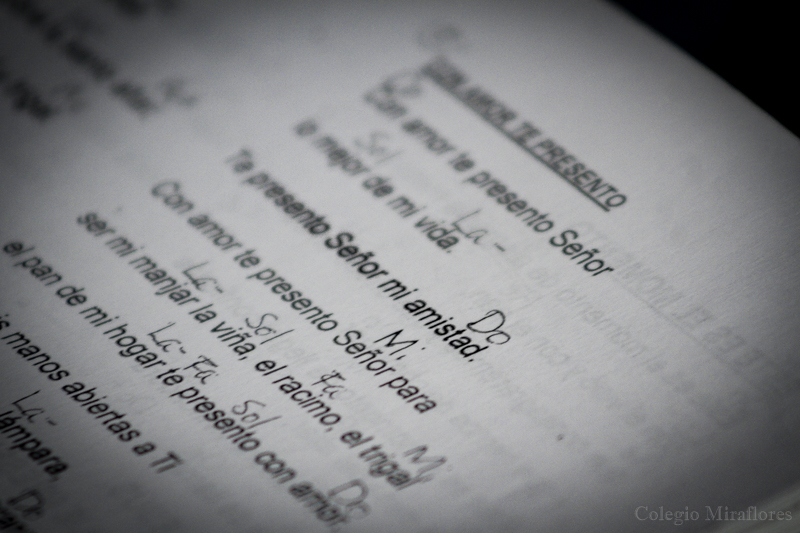 CON AMOR TE PRESENTO
Do
Con amor te presento Señor
Sol La-
lo mejor de mi vida.
Do
Te presento Señor mi amistad.
Mi
Con amor te presento Señor para
La- Sol Fa Mi
ser mi manjar la viña, el racimo, el trigal
La- Fa Sol Do
el pan de mi hogar te presento con amor.
manos abiertas a Ti
La-
lámpara,
Do
Colegio Miraflores